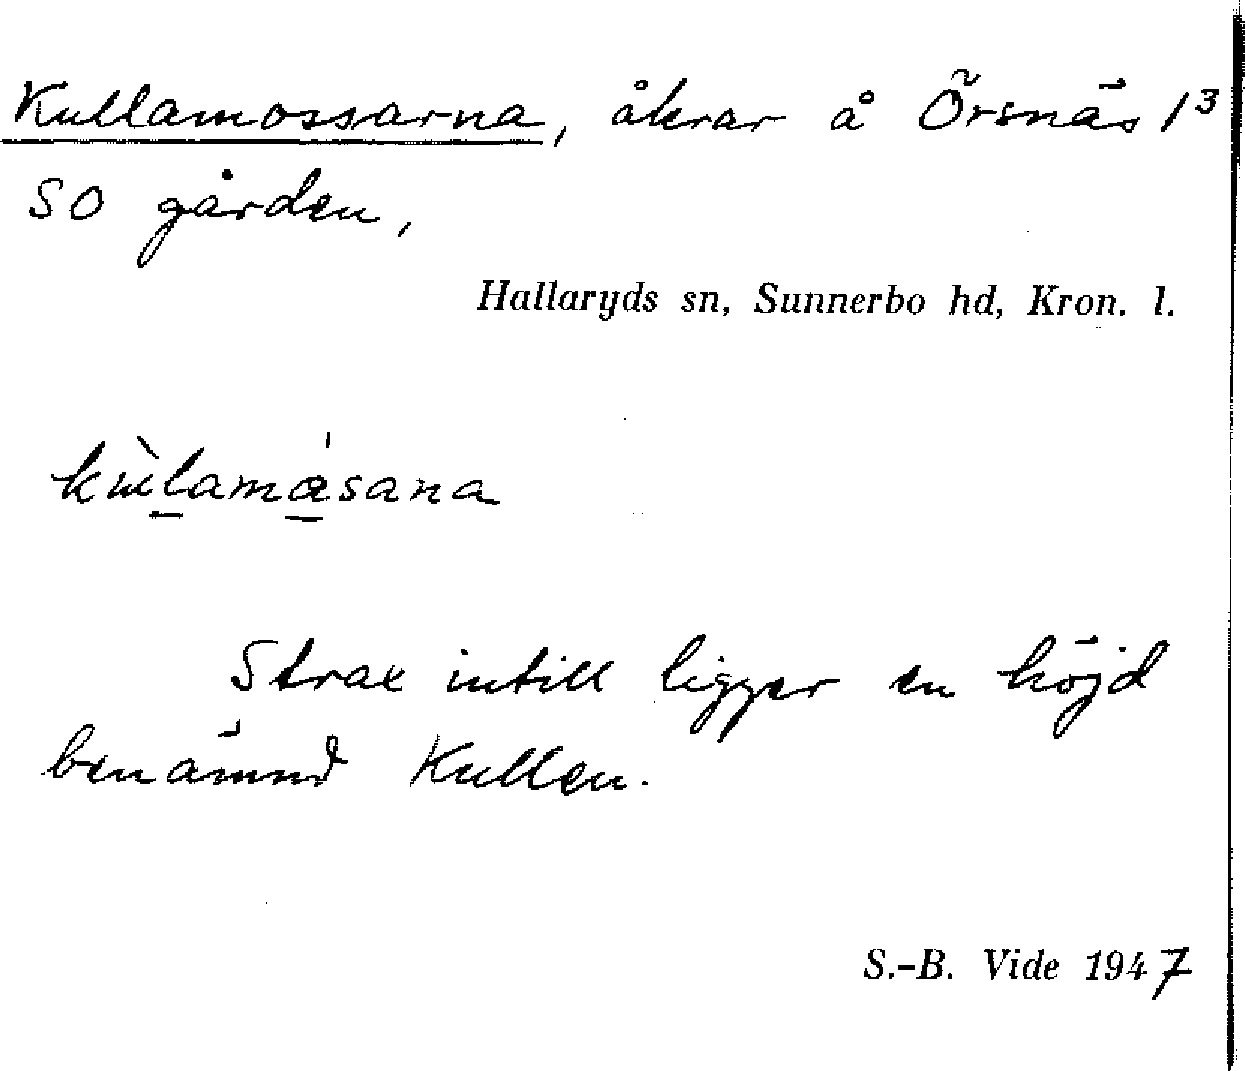 Kullamossarna, åkrar å Örsnäs 1³
SO gården,
Hallaryds sn, Sunnerbo hd, Kron. l.
Strax intill ligger en höjd
benämnd Kullen.
S.-B. Vide 1947